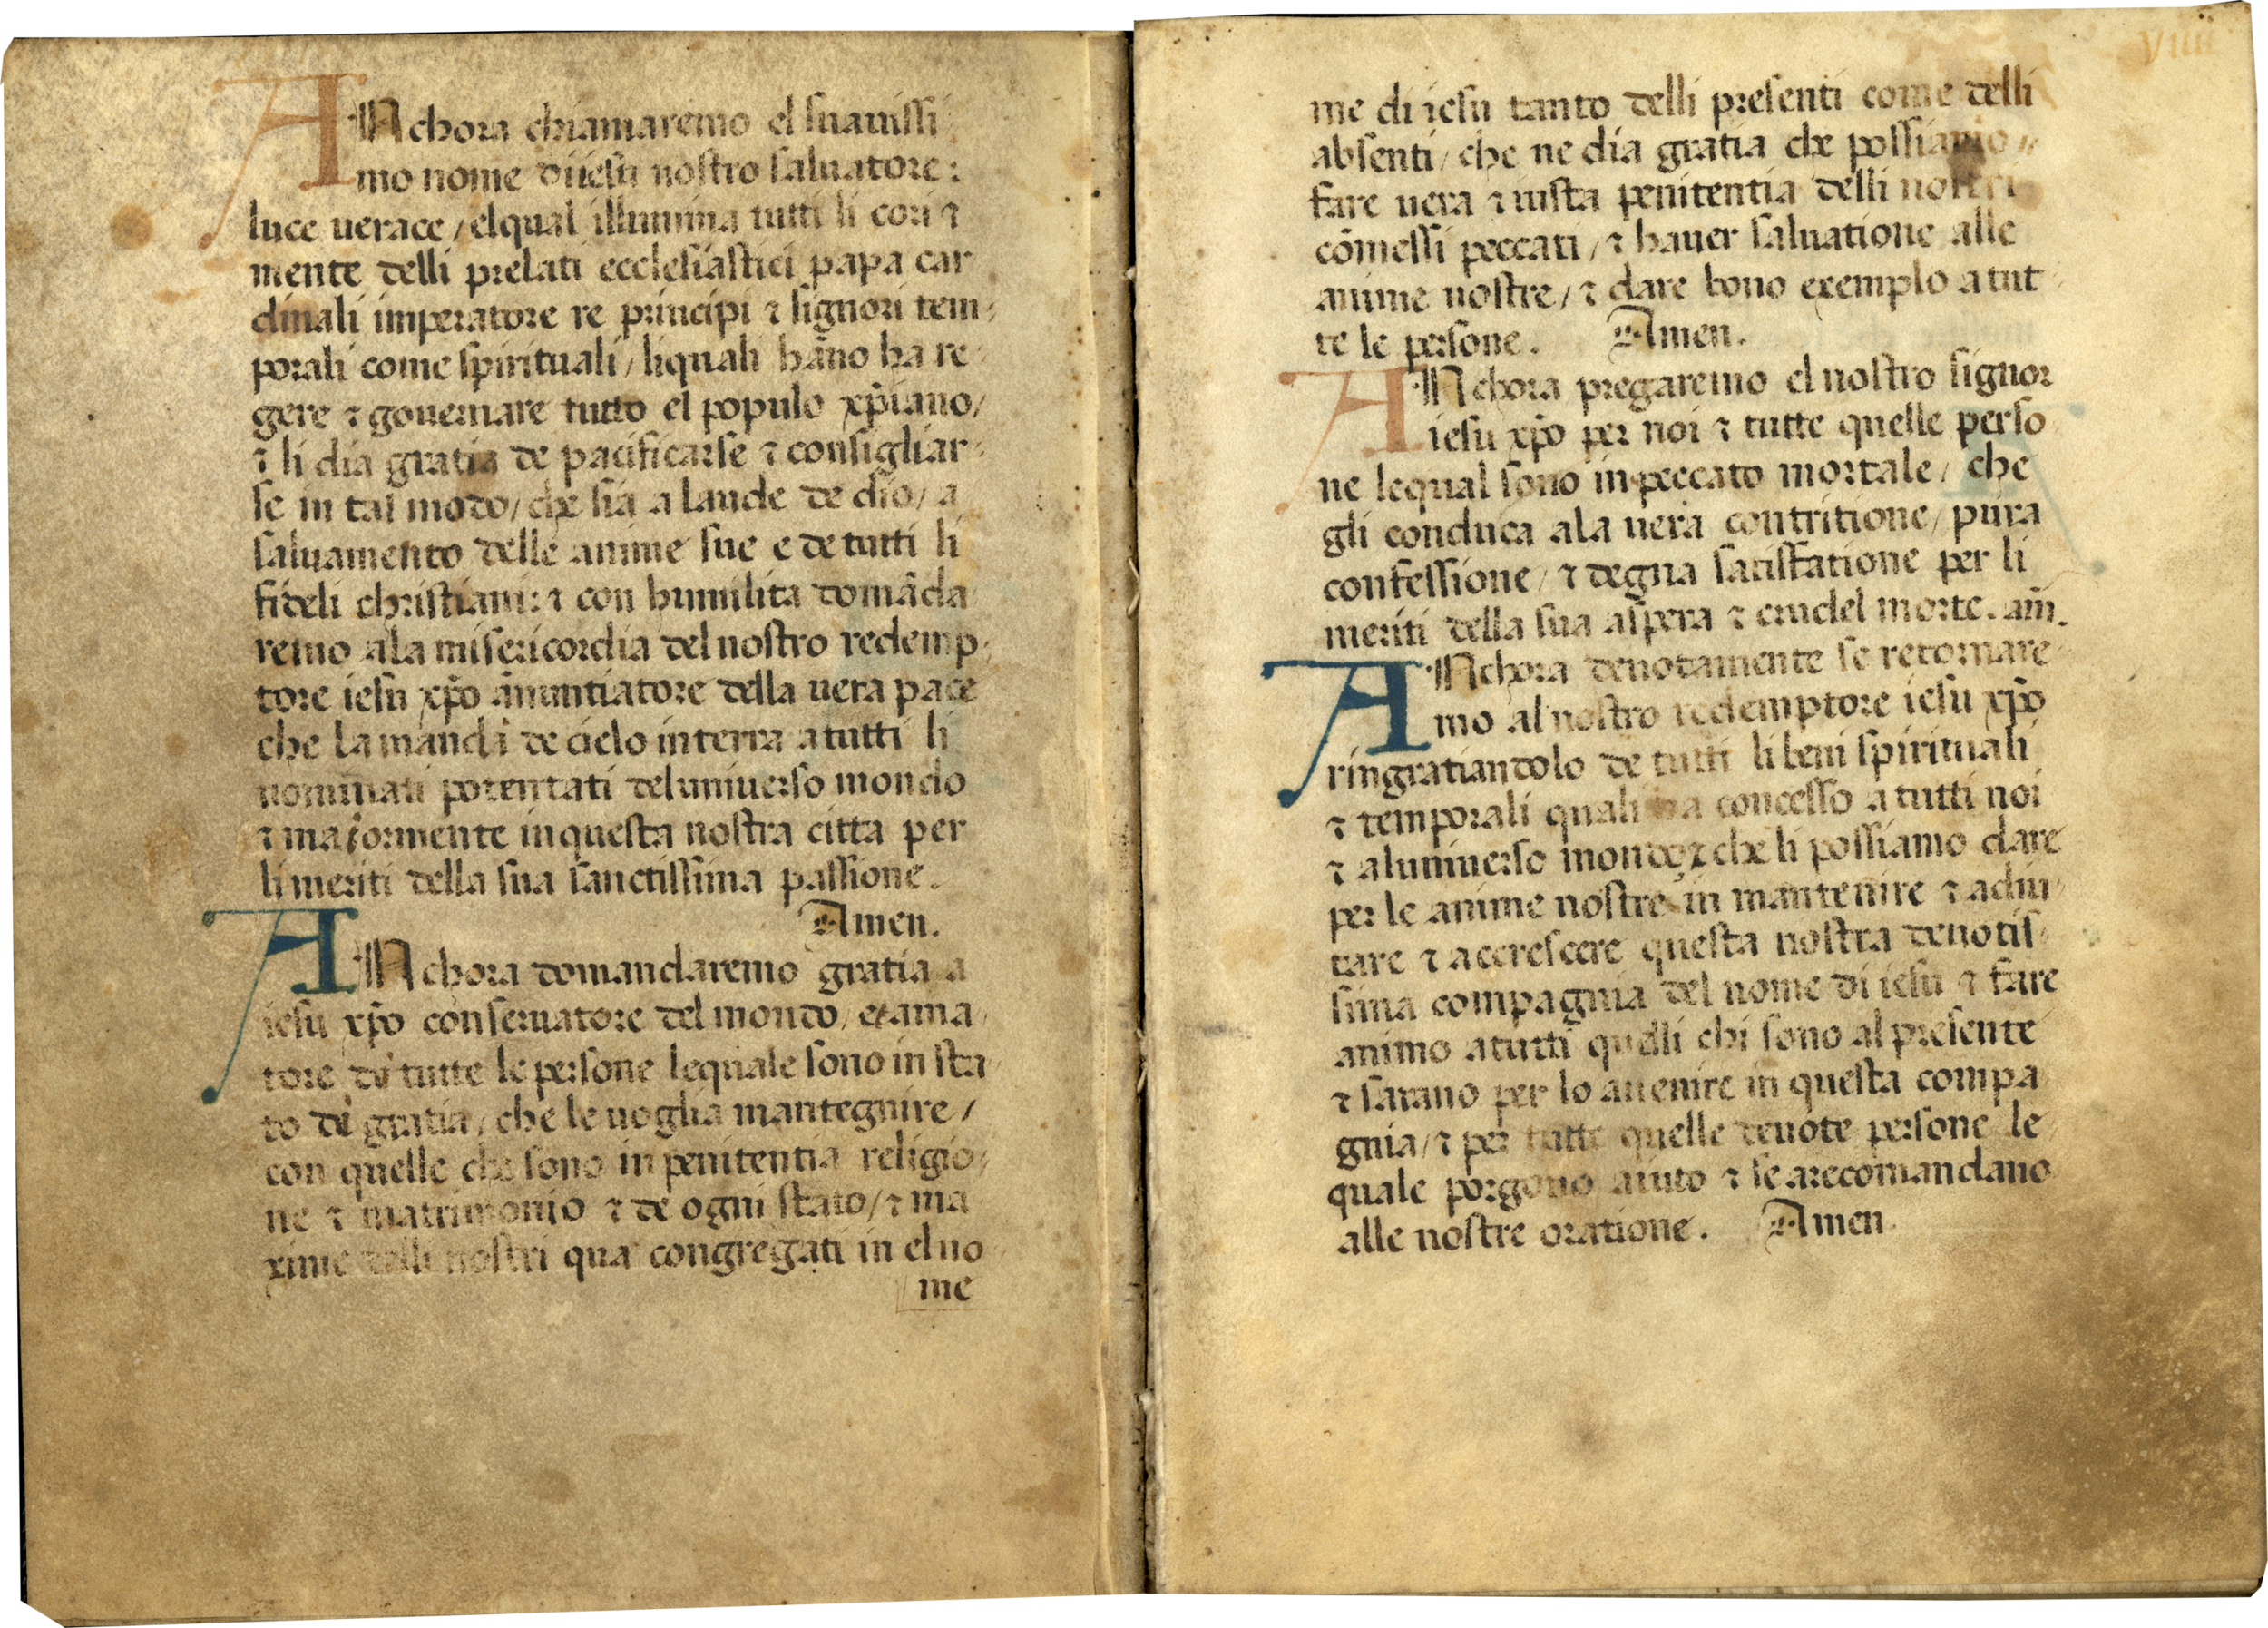 ANchora chiamaremo el suauissi
mo nome di iesu nostro saluatore:
luce uerace / elqual illumina tutti li cori ⁊
mente delli prelati ecclesiastici papa car
dinali imperatore re principi ⁊ signori tem⸗
porali come spirituali / liquali hãno ha re⸗
gere ⁊ gouernare tutto el populo xp̃iano /
⁊ li dia gratia de pacificarse ⁊ consigliar⸗
se in tal modo / che sia a laude de dio / a
saluamento delle anime sue e de tutti li
fideli christiani: ⁊ con humilita domãda
remo ala misericordia del nostro redemp⸗
tore iesu xp̃o ãnuntiatore della uera pace
che la mandi de cielo in terra a tutti li
nominati potentati del uniuerso mondo
⁊ maiormente in questa nostra citta per
li meriti della sua sanctissima passione.
Amen.
ANchora domandaremo gratia a
iesu xp̃o conseruatore del mondo, et ama⸗
tore di tutte le persone lequale sono in sta⸗
to di gratia, che le uoglia mantegnire /
con quelle che sono in penitentia religio⸗
ne ⁊ matrimonio ⁊ de ogni stato / ⁊ ma
xime delli nostri qua congregati in el no
me
viiii
me di iesu tanto delli presenti come delli
absenti / che ne dia gratia che possiamo⸗
fare uera ⁊ iusta penitentia delli nostri
cõmessi peccati / ⁊ hauer saluatione alle
anime nostre / ⁊ dare bono exemplo a tut⸗
te le persone. Amen.
ANchora pregaremo el nostro signor
iesu xp̃o per noi ⁊ tutte quelle perso
ne lequal sono in peccato mortale / che
gli conduca ala uera contritione / pura
confessione / ⁊ degna satisfatione per li
meriti della sua aspera ⁊ crudel morte. am̃.
ANchora deuotamente se retornare⸗
mo al nostro redemptore iesu xp̃o
ringratiandolo de tutti li beni spirituali
⁊ temporali quali ha concesso a tutti noi
⁊ al uniuerso mondo ⁊ che li possiamo dare
per le anime nostre in mantenire ⁊ adiu⸗
tare ⁊ accrescere questa nostra deuotis⸗
sima compagnia del nome di iesu ⁊ fare
animo a tutti quelli chi sono al presente
⁊ sarano per lo auenire in questa compa
gnia / ⁊ per tutte quelle deuote persone le⸗
quale porgono aiuto ⁊ se arecomandano
alle nostre oratione. Amen.